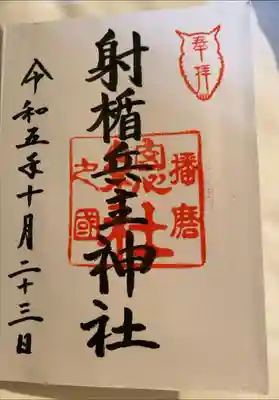 奉拝
射楯兵主神社
播磨
之國
總社
令和五年十月二十三日